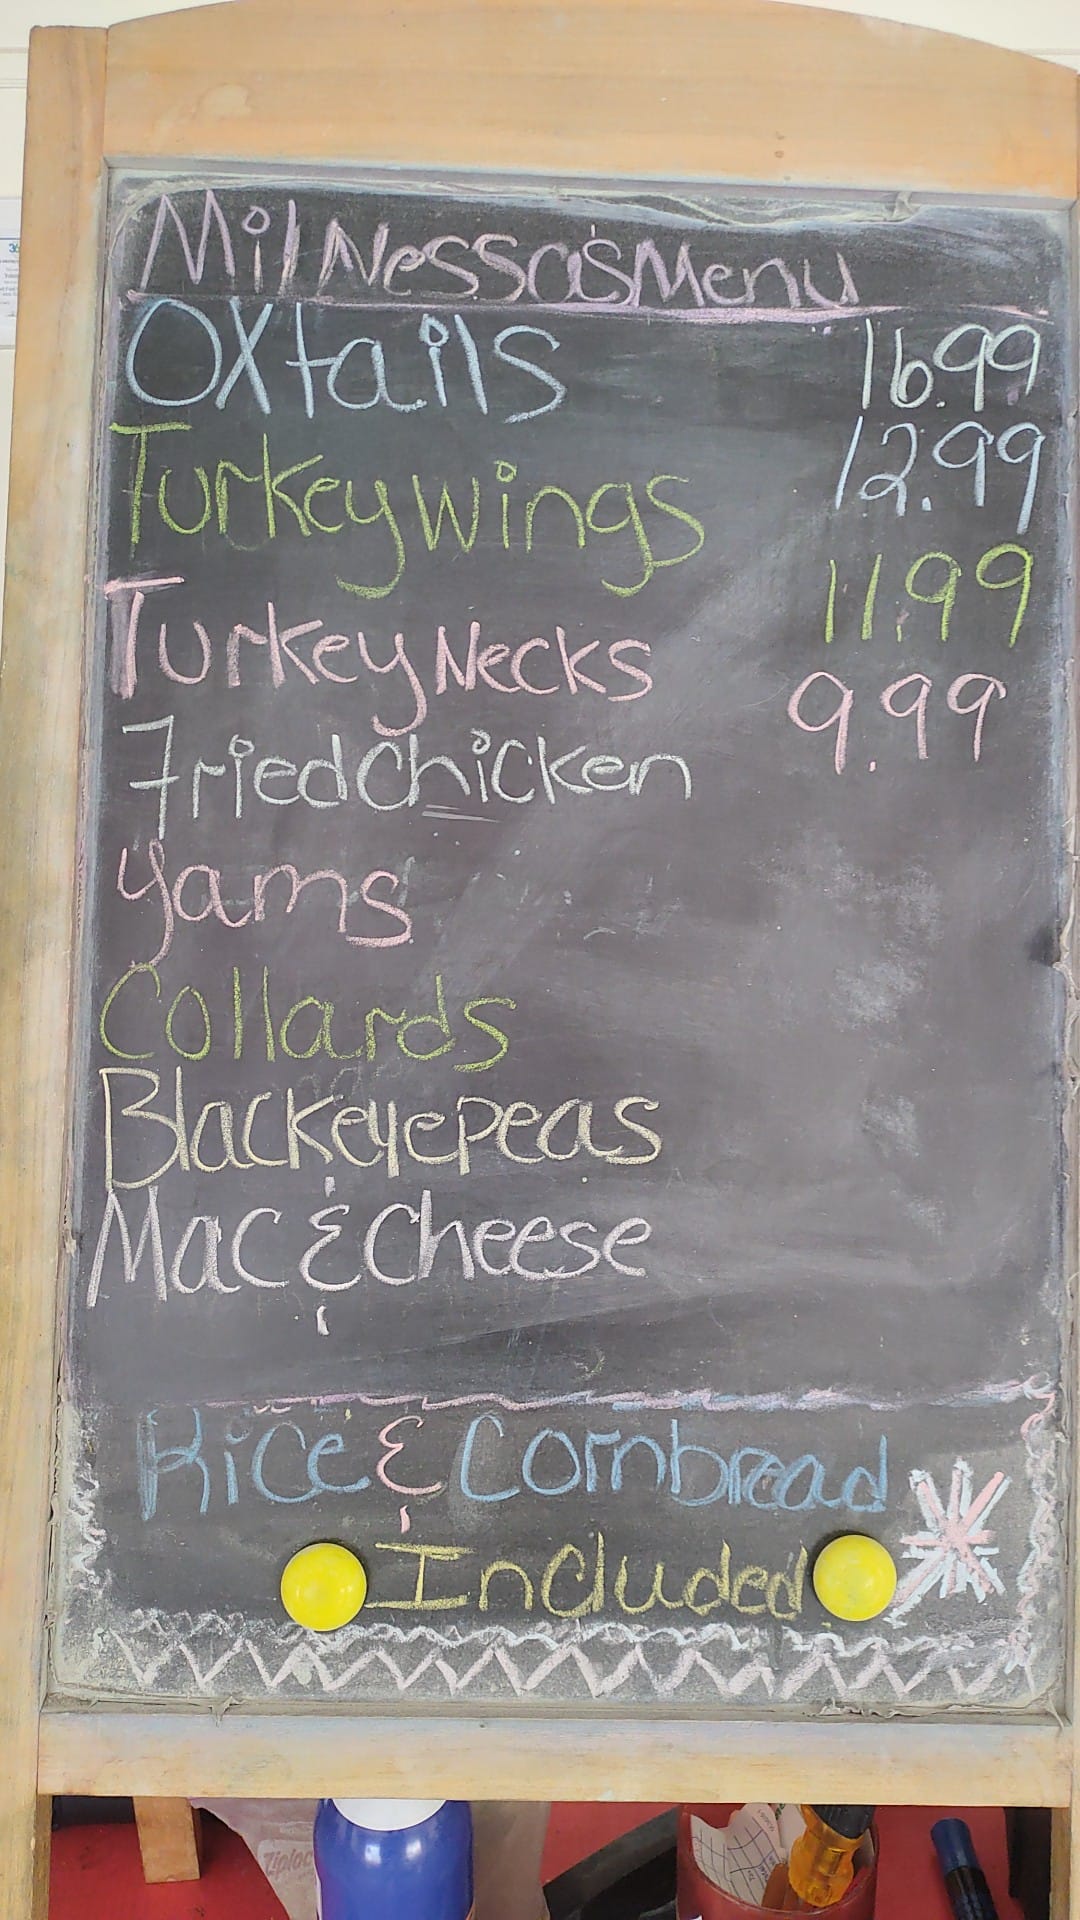 Mil Nessa's Menu
Oxtails 16.99
Turkey wings 12.99
Turkey Necks 11.99
Fried chicken 9.99
Yams
Collards
Blackeyepeas
Mac & Cheese
Rice & Cornbread
Included
Ziploc